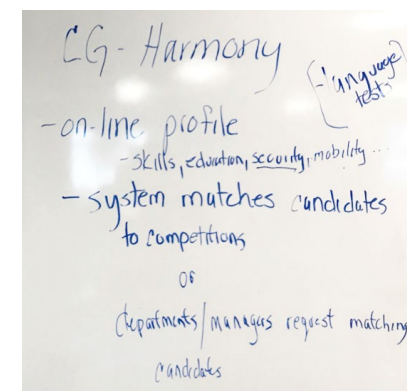 CG - Harmony
(- language
tests
- on-line profile
- skills, education, security, mobility ...
- system matches candidates
to competitions
or
departments/managers request matching
candidates